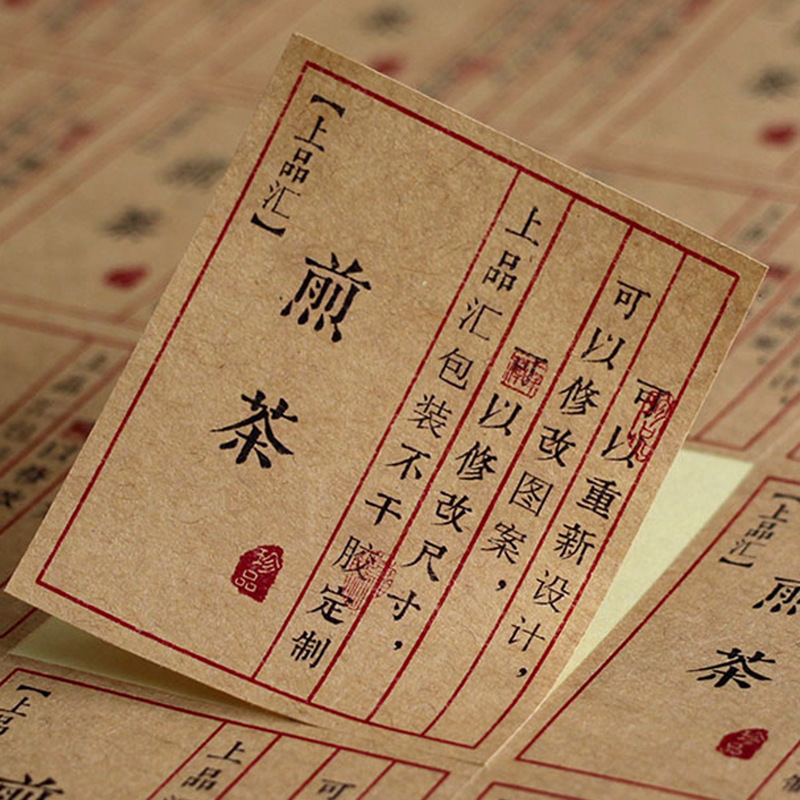 可以重新设计，
可以修改图案，
可以修改尺寸，
上品汇包装不干胶定制
煎茶
珍品
【上品汇】
珍品
煎茶
珍品
【上品汇】
可
上品
煎
【上品